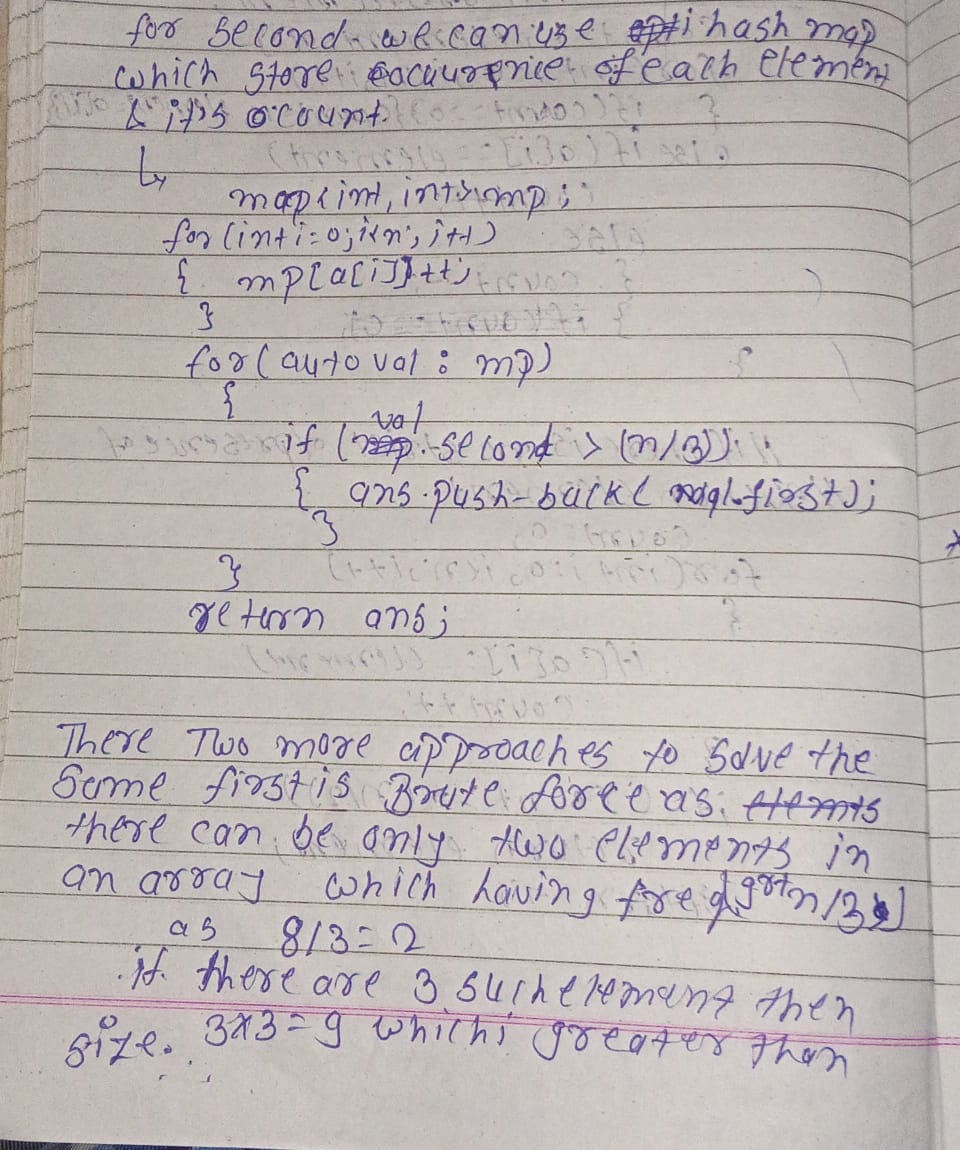 for second we can use hash map
which store occurence of each element
& it's ocount.
↳
map<int, int> mp;
for (int i=0; i<n; i++)
{ mp[a[i]]++;
}
for (auto val : mp)
{
val
if ( .second > (n/3))
{ ans.push-back( val.first);
}
}
return ans;
There Two more approaches to solve the
same first is Brute force as
there can be only two elements in
an array which having freq grt n/3
as 8/3=2
if there are 3 such element then
size. 3x3=9 which greater than